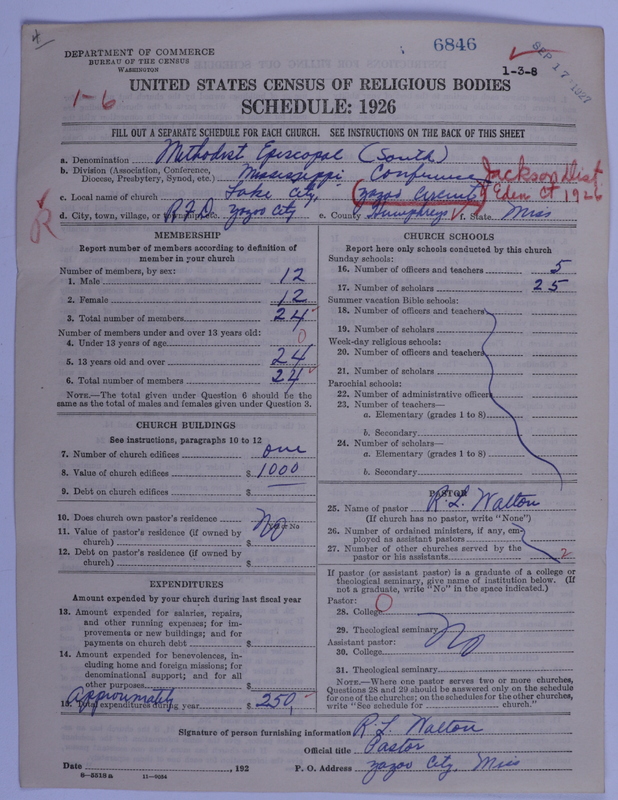 6846
SEP 17 1927
1-3-8
DEPARTMENT OF COMMERCE
BUREAU OF THE CENSUS
WASHINGTON
1-6
UNITED STATES CENSUS OF RELIGIOUS BODIES
SCHEDULE: 1926
FILL OUT A SEPARATE SCHEDULE FOR EACH CHURCH. SEE INSTRUCTIONS ON THE BACK OF THIS SHEET
a. Denomination Methodist Episcopal (South)
b. Division (Association, Conference, Diocese, Presbytery, Synod, etc.) Mississippi Conference Jackson Dist
c. Local name of church Lake City, (Yazoo Circuit) Eden Ct 1926
d. City, town, village, or R.F.D. Yazoo City e. County Humphreys f. State Miss
MEMBERSHIP
Report number of members according to definition of
member in your church
Number of members, by sex:
1. Male 12
2. Female 12
3. Total number of members 24
Number of members under and over 13 years old:
4. Under 13 years of age 0
5. 13 years old and over 24
6. Total number of members 24
NOTE.—The total given under Question 6 should be the
same as the total of males and females given under Question 3.
CHURCH BUILDINGS
See instructions, paragraphs 10 to 12
7. Number of church edifices one
8. Value of church edifices $ 1000
9. Debt on church edifices $
10. Does church own pastor's residence No
Yes or No
11. Value of pastor's residence (if owned by
church) $
12. Debt on pastor's residence (if owned by
church) $
EXPENDITURES
Amount expended by your church during last fiscal year
13. Amount expended for salaries, repairs,
and other running expenses; for im-
provements or new buildings; and for
payments on church debt $
14. Amount expended for benevolences, in-
cluding home and foreign missions; for
denominational support; and for all
other purposes $
Approximately
15. Total expenditures during year $ 250
CHURCH SCHOOLS
Report here only schools conducted by this church
Sunday schools:
16. Number of officers and teachers 5
17. Number of scholars 25
Summer vacation Bible schools:
18. Number of officers and teachers
19. Number of scholars
Week-day religious schools:
20. Number of officers and teachers
21. Number of scholars
Parochial schools:
22. Number of administrative officers
23. Number of teachers—
a. Elementary (grades 1 to 8)
b. Secondary
24. Number of scholars—
a. Elementary (grades 1 to 8)
b. Secondary
PASTOR
25. Name of pastor R. L. Walton
(If church has no pastor, write "None")
26. Number of ordained ministers, if any, em-
ployed as assistant pastors
27. Number of other churches served by the
pastor or his assistants 2
If pastor (or assistant pastor) is a graduate of a college or
theological seminary, give name of institution below. (If
not a graduate, write "No" in the space indicated.)
Pastor:
28. College 0
29. Theological seminary No
Assistant pastor:
30. College
31. Theological seminary
NOTE.—Where one pastor serves two or more churches,
Questions 28 and 29 should be answered only on the schedule
for one of the churches; on the schedules for the other churches,
write "See schedule for church."
Signature of person furnishing information R L Walton
Official title Pastor
Date , 192 P. O. Address Yazoo City, Miss
8-5518a 11-9034